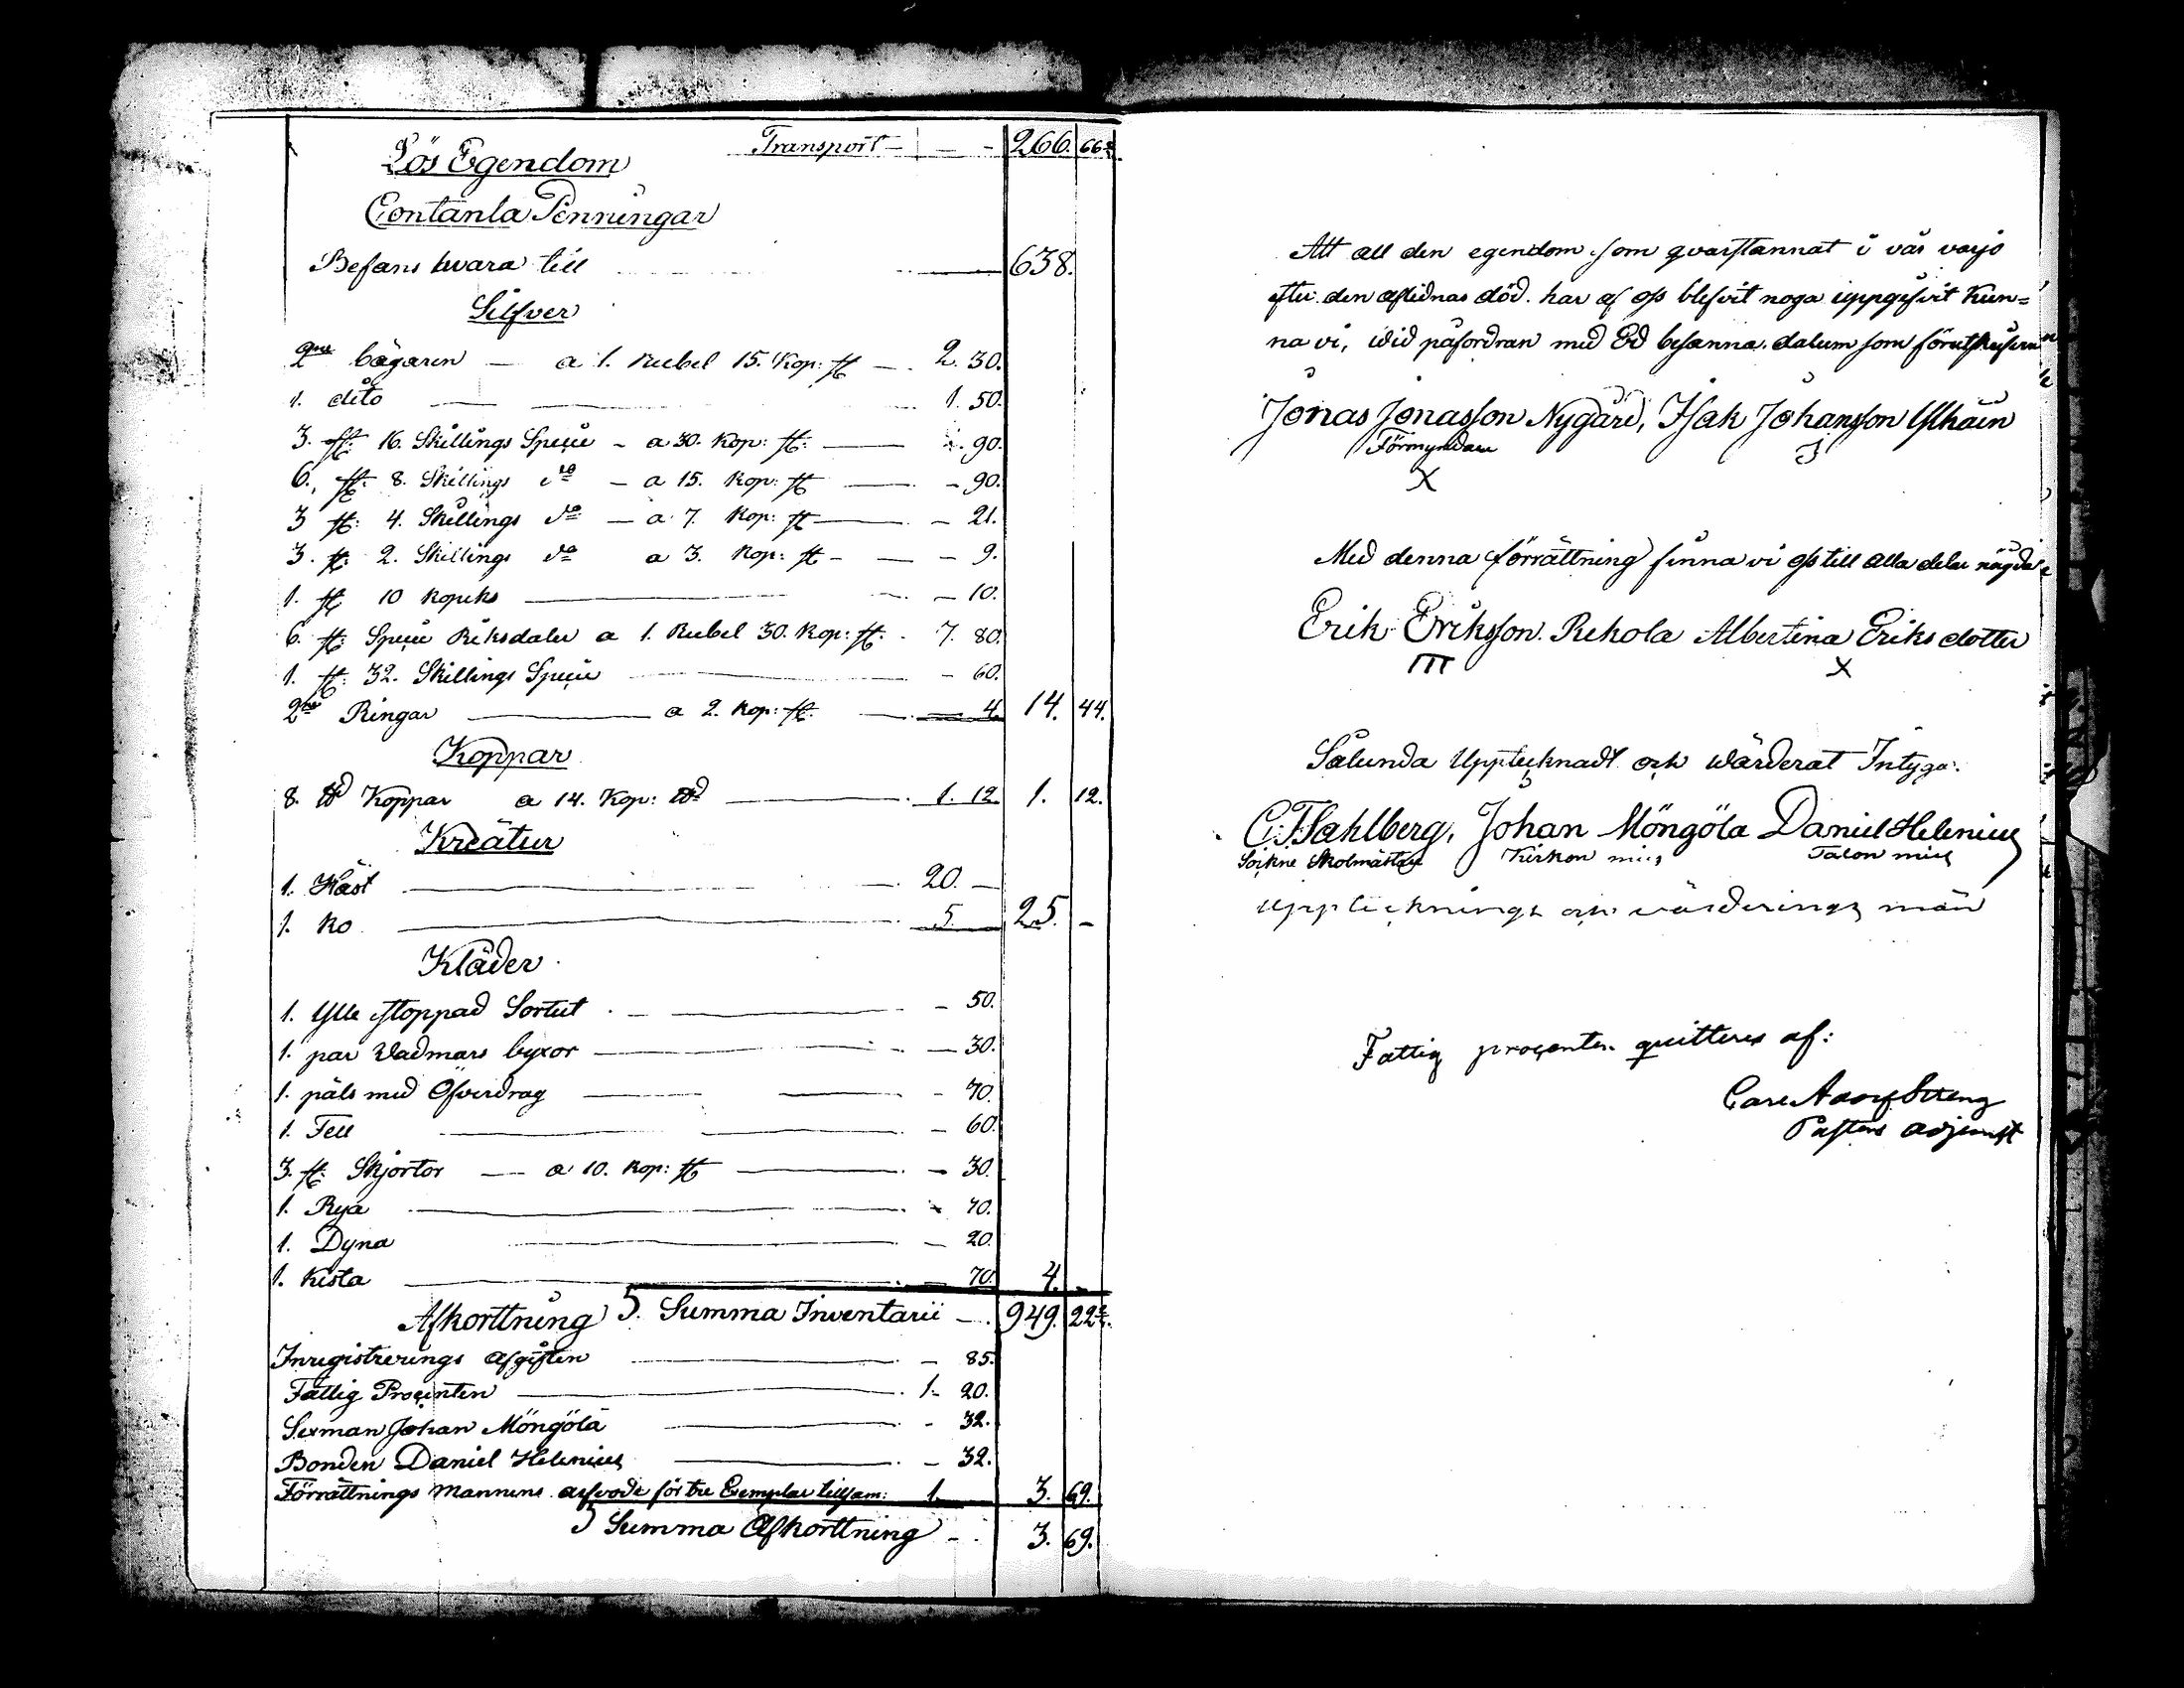 Transport — — - 266. 66⅔.
Lös Egendom
Contanta Penningar
Befans vara till 638.
Silfver
2ne bägaren — a 1. Rubel 15. Kop: st — 2. 30.
1. dito — 1. 50.
3. st: 16. Skillings Specie - a 30. Kop: st: — - 90.
6. st: 8. Skillings do — a 15. Kop: st — - 90.
3 st: 4. Skillings do — a 7. Kop: st — - 21.
3. st: 2. Skillings do a 3. Kop: st - — - 9.
1. st 10 Kopeks — - 10.
6. st: Specie Riksdaler a 1. Rubel 30. Kop: st: 7. 80.
1. st: 32. Skillings Specie — - 60.
2ne Ringar — a 2. Kop: st. — 4. 14. 44.
Koppar
8. ℔d Koppar a 14. Kop: ℔d — 1. 12 1. 12.
Kreatur
1. Häst — 20. —
1. Ko — 5. 25. -
Kläder
1. Ylle stoppad Sortut — - 50.
1. par Vadmars byxor — — 30.
1. päls med Öfverdrag — - 70.
1. Fell — - 60.
3. st: Skjortor — a 10. Kop: st — - 30.
1. Rya — 70.
1. Dyna — 20.
1. Kista — 70. 4. -
Afkorttning Summa Inventarii — 949. 22⅔.
Inregistrerings afgiften — - 85.
Fattig Procenten — 1. 20.
Sexman Johan Möngölä — - 32.
Bonden Daniel Helenius — - 32.
Förrättnings Mannens arfvode för tre Exemplar tillsam: 1. 3. 69.
Summa Afkorttning - 3. 69.
Att all den egendom som qvarstannat i vår värjo
efter den aflidnas död. har af oss blefvit noga uppgifvit Kun=
na vi, wid påfordran med Ed besanna. datum som förutskrifven
Jonas Jonasson Nygård, Isak Johansson Ylhäin
Förmyndare
X
Med denna förrättning finna vi oss till alla delar nögda
Erik Eriksson Rekola Albertina Eriksdotter
III X
Sålunda Upptecknadt och wärderat Intyga:
C. F. Sahlberg, Johan Möngölä Daniel Helenius
Sockne Skolmästare Kirkon mies Talon mies
Upptecknings och värderings män
Fattig procenten quitteras af:
Carl Adolf Streng
Pastors adjunkt